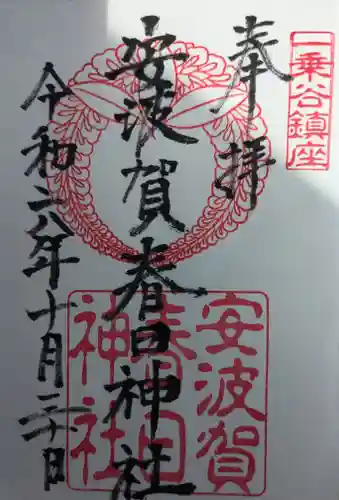 一乗谷鎮座
奉拝
安波賀春日神社
令和二八年十月三十日
安波賀
春日
神社